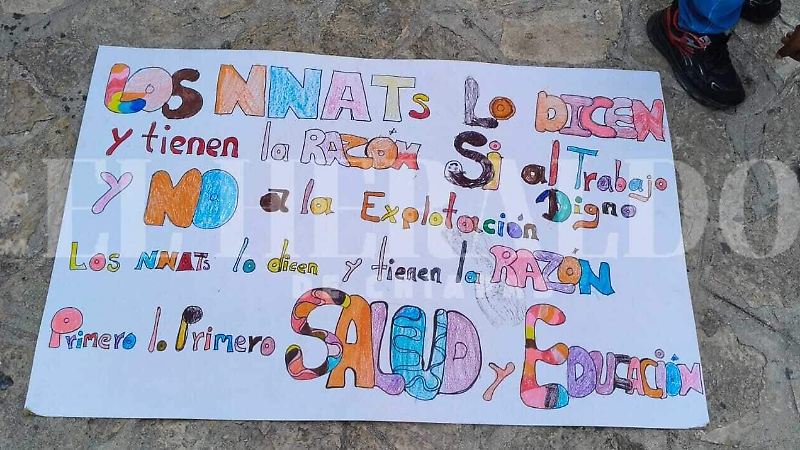 LOS NNATs Lo DICEN
y tienen la RAZÓN Si al Trabajo
y NO a la Explotación Digno
Los NNATs lo dicen y tienen la RAZÓN
Primero lo Primero SALUD y EDUCACIÓN
EL HERALDO
DE CHIAPAS